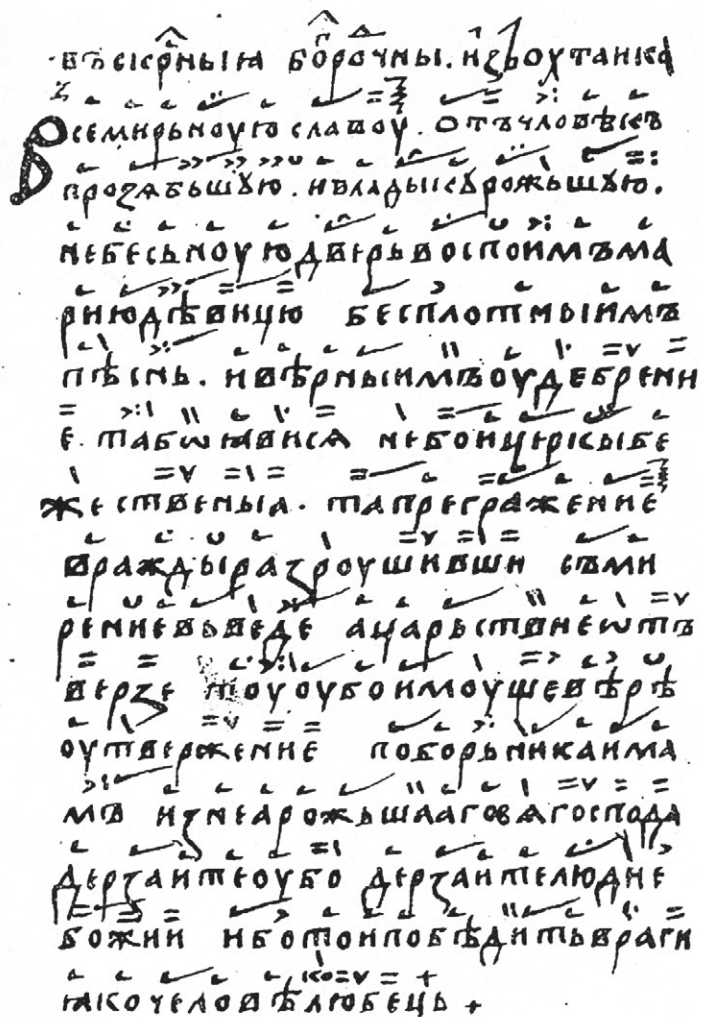 въскр҃ныıа бор҃очны. изъоутанка
Всемирьноую славоу. отъчловѣкъ
прозѧбъшꙋю. ивладыкꙋрожьшꙋю.
небесьноую дверьвоспоимъма
риюдѣвицю бесплотныимъ
пѣснь. ивѣрныимъоудебрени
е. табѡꙗвисѧ небоицеркыбе
жественыıа. тапреграждение
враждыразроушивши съми
рениевъведе ацарьствиеѡтъ
верзе тоуоубоимоущевѣрѣ
оутвержение поборьникаима
мъ изнеарожьшаагосѧгоспода
дерзаитеоубо дерзаителюдие
божии иботоипобѣдитьврагы
ꙗкочеловѣлюбець +